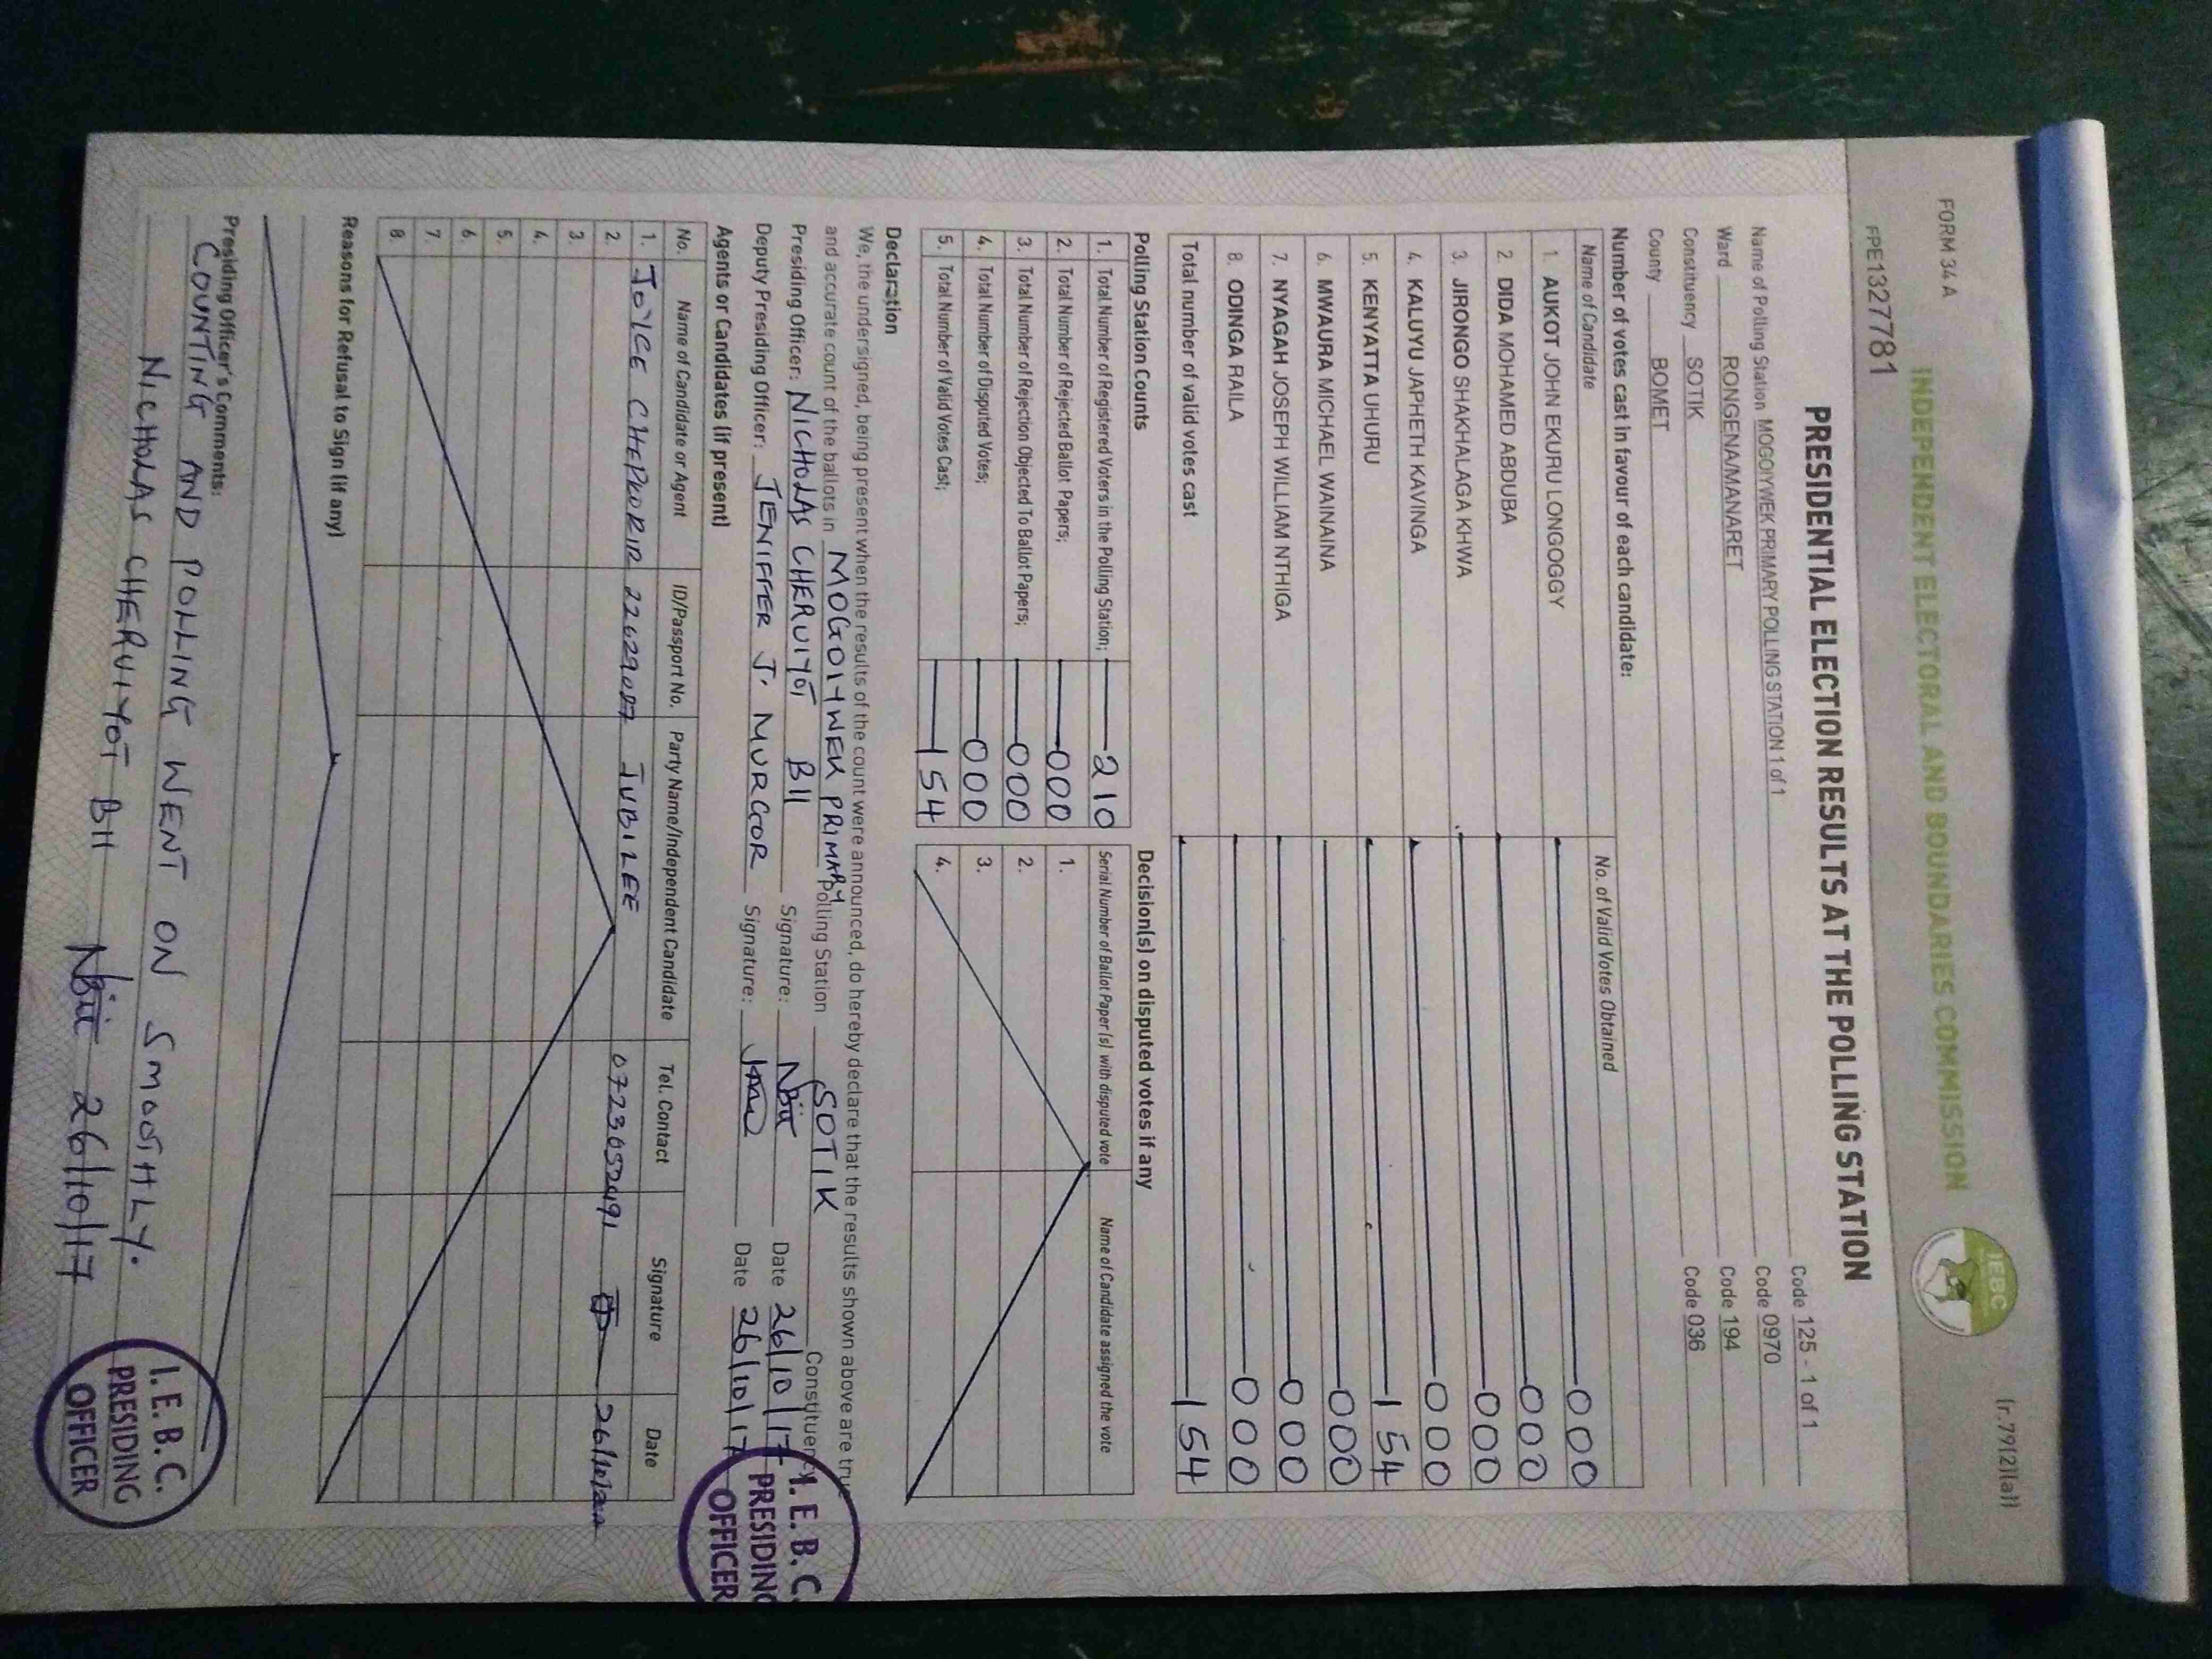 FORM 34 A
(r.79(2)(a))
INDEPENDENT ELECTORAL AND BOUNDARIES COMMISSION
IEBC
FPE1327781
PRESIDENTIAL ELECTION RESULTS AT THE POLLING STATION
Name of Polling Station MOGOIYWEK PRIMARY POLLING STATION 1 of 1 Code 125 - 1 of 1
Ward RONGENA/MANARET Code 0970
Constituency SOTIK Code 194
County BOMET Code 036
Number of votes cast in favour of each candidate:
Name of Candidate No. of Valid Votes Obtained
1. AUKOT JOHN EKURU LONGOGGY 000
2. DIDA MOHAMED ABDUBA 000
3. JIRONGO SHAKHALAGA KHWA 000
4. KALUYU JAPHETH KAVINGA 000
5. KENYATTA UHURU 154
6. MWAURA MICHAEL WAINAINA 000
7. NYAGAH JOSEPH WILLIAM NTHIGA 000
8. ODINGA RAILA 000
Total number of valid votes cast 154
Polling Station Counts
1. Total Number of Registered Voters in the Polling Station; 210
2. Total Number of Rejected Ballot Papers; 000
3. Total Number of Rejection Objected To Ballot Papers; 000
4. Total Number of Disputed Votes; 000
5. Total Number of Valid Votes Cast; 154
Decision(s) on disputed votes if any
Serial Number of Ballot Paper(s) with disputed vote Name of Candidate assigned the vote
1.
2.
3.
4.
Declaration
We, the undersigned, being present when the results of the count were announced, do hereby declare that the results shown above are true
and accurate count of the ballots in MOGOIYWEK PRIMARY Polling Station SOTIK Constituency
Presiding Officer: NICHOLAS CHERUIYOT BII Signature: Date 26/10/17
Deputy Presiding Officer: JENIFFER J. MURGOR Signature: Date 26/10/17
I.E.B.C.
PRESIDING
OFFICER
Agents or Candidates (if present)
No. Name of Candidate or Agent ID/Passport No. Party Name/Independent Candidate Tel. Contact Signature Date
1. JOYCE CHEPKORIR 22629087 JUBILEE
2.
3.
4.
5.
6.
7.
8.
Reasons for Refusal to Sign (if any)
Presiding Officer's Comments:
COUNTING AND POLLING WENT ON SMOOTHLY.
NICHOLAS CHERUIYOT BII 26/10/17
I.E.B.C.
PRESIDING
OFFICER